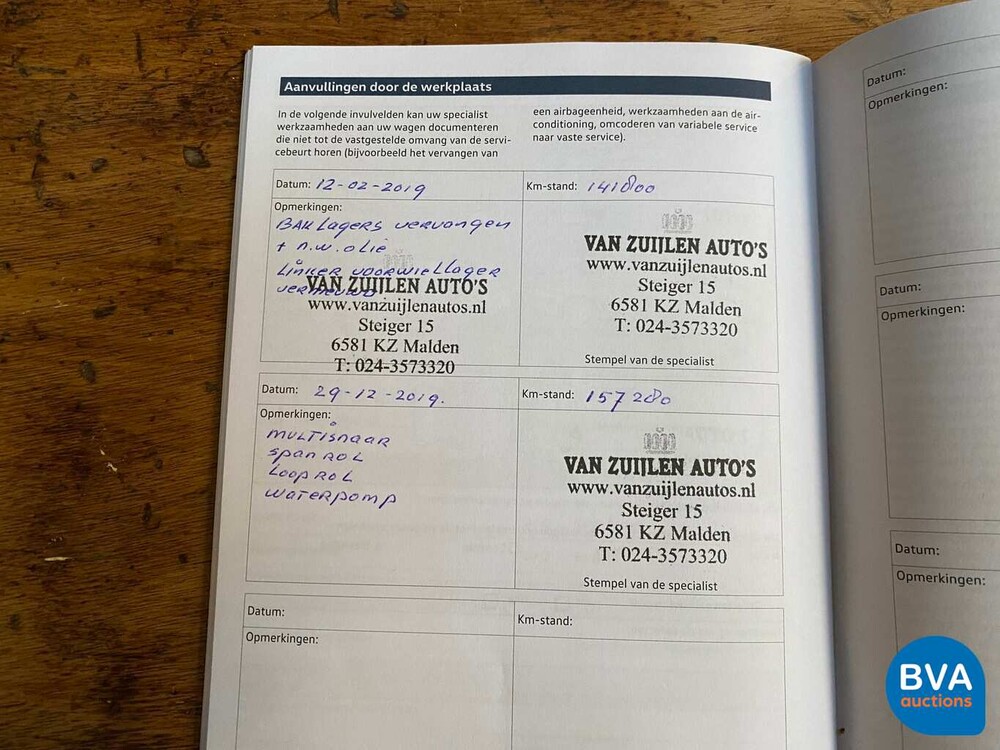 Aanvullingen door de werkplaats
In de volgende invulvelden kan uw specialist
werkzaamheden aan uw wagen documenteren
die niet tot de vastgestelde omvang van de servi-
cebeurt horen (bijvoorbeeld het vervangen van
een airbageenheid, werkzaamheden aan de air-
conditioning, omcoderen van variabele service
naar vaste service).
Datum: 12-02-2019
Km-stand: 141800
Opmerkingen:
BAK Lagers vervangen
+ n.w. olie
Linker voorwiellager
vernieuwd
VAN ZUIJLEN AUTO'S
www.vanzuijlenautos.nl
Steiger 15
6581 KZ Malden
T: 024-3573320
VAN ZUIJLEN AUTO'S
www.vanzuijlenautos.nl
Steiger 15
6581 KZ Malden
T: 024-3573320
Stempel van de specialist
Datum: 29-12-2019.
Km-stand: 157280
Opmerkingen:
multisnaar
spanrol
Looprol
waterpomp
VAN ZUIJLEN AUTO'S
www.vanzuijlenautos.nl
Steiger 15
6581 KZ Malden
T: 024-3573320
Stempel van de specialist
Datum:
Km-stand:
Opmerkingen:
Datum:
Opmerkingen:
Datum:
Opmerkingen:
Datum:
Opmerkingen:
BVA
auctions